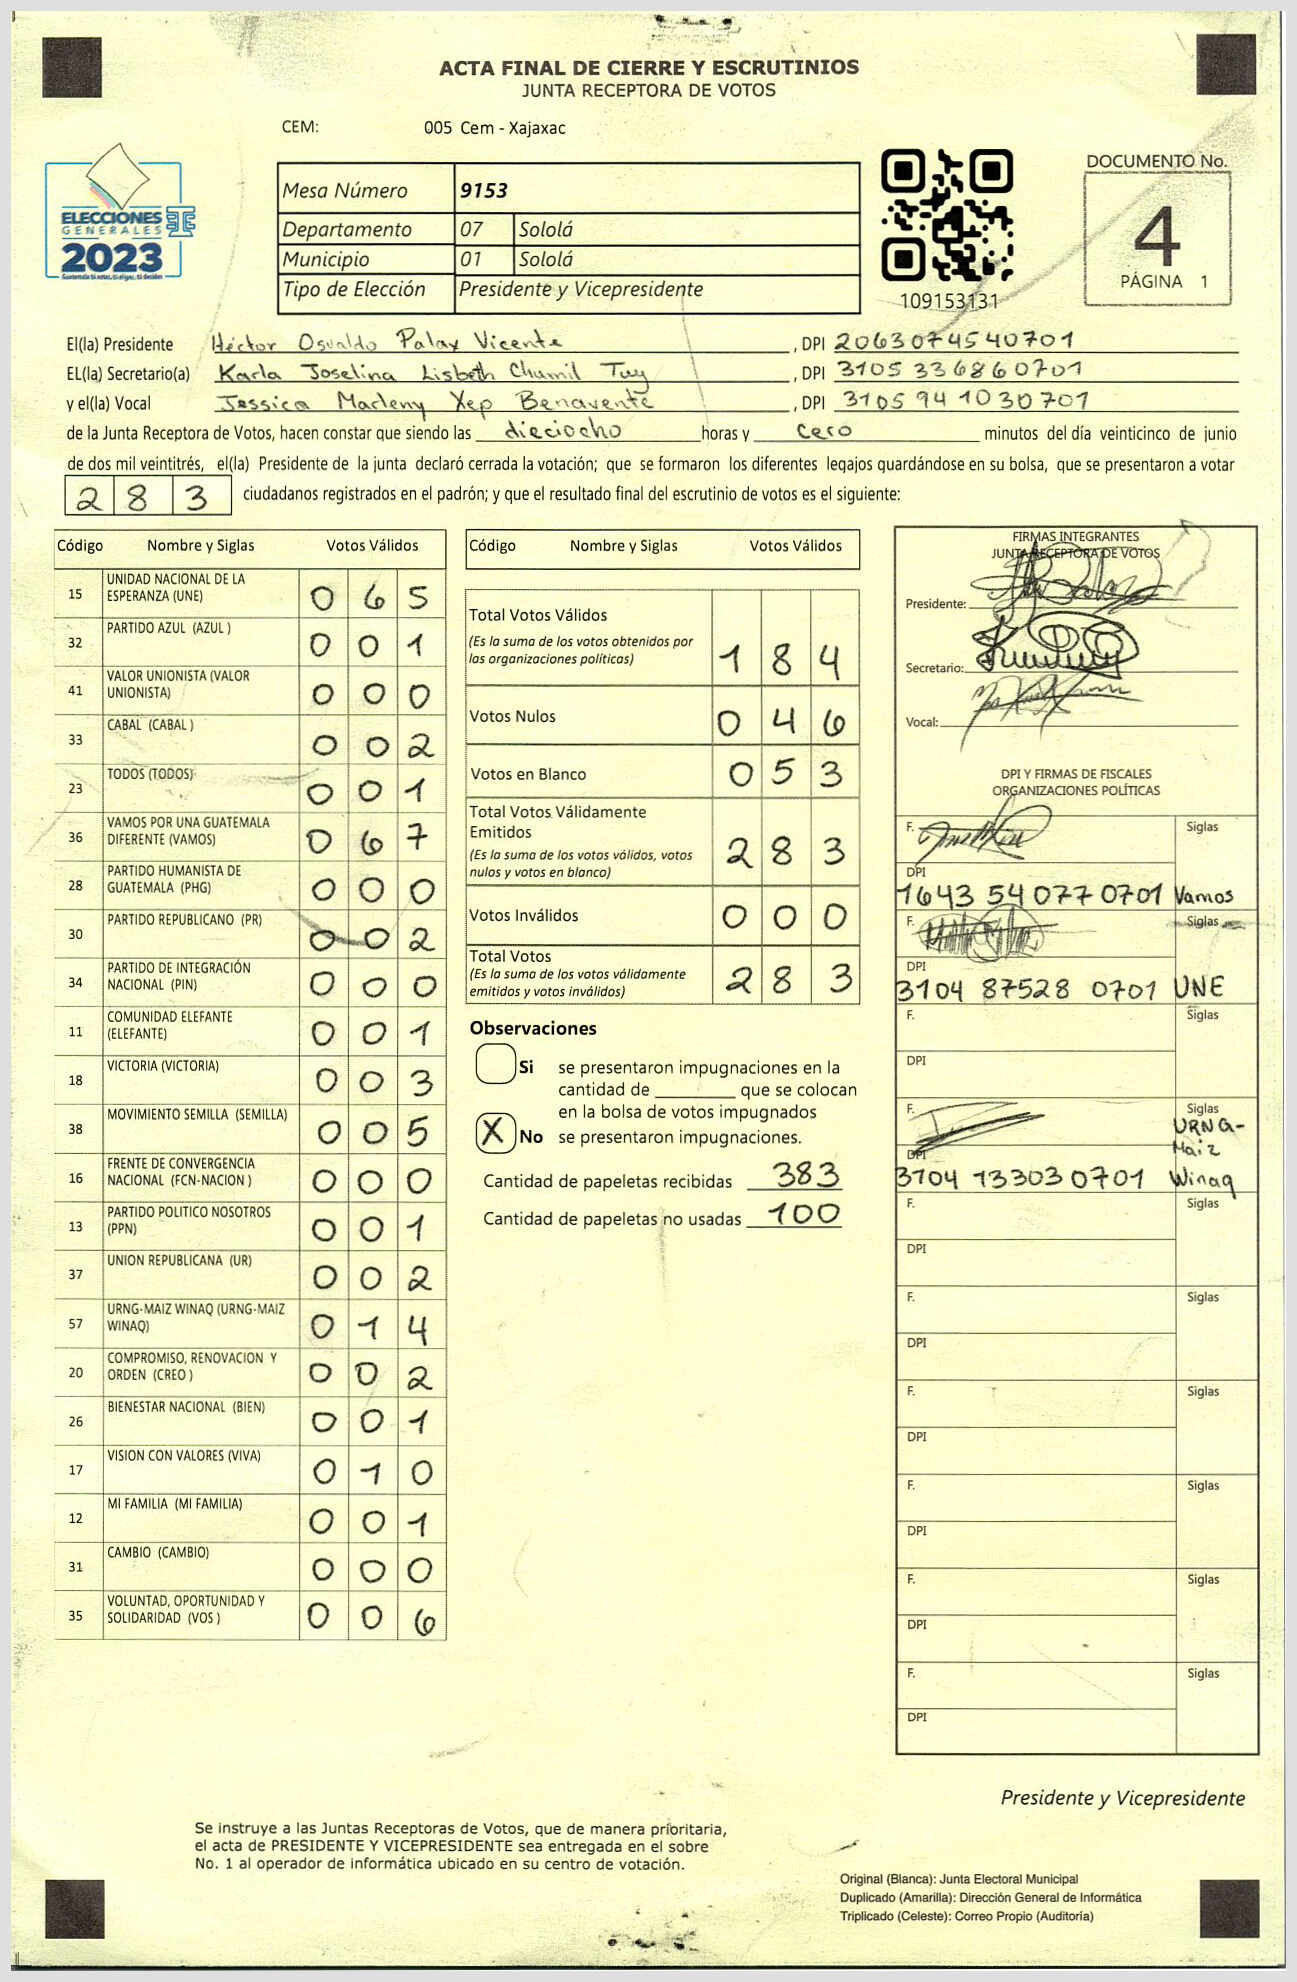 ACTA FINAL DE CIERRE Y ESCRUTINIOS
JUNTA RECEPTORA DE VOTOS
CEM: 005 Cem - Xajaxac
ELECCIONES
GENERALES
2023
Mesa Número 9153
Departamento 07 Sololá
Municipio 01 Sololá
Tipo de Elección Presidente y Vicepresidente
109153131
DOCUMENTO No.
4
PÁGINA 1
El(la) Presidente Héctor Osvaldo Palax Vicente, DPI 2063074540701
EL(la) Secretario(a) Karla Joselina Lisbeth Chumil Tuy, DPI 3105336860701
y el(la) Vocal Jessica Marleny Xep Benavente, DPI 3105941030701
de la Junta Receptora de Votos, hacen constar que siendo las dieciocho horas y cero minutos del día veinticinco de junio
de dos mil veintitrés, el(la) Presidente de la junta declaró cerrada la votación; que se formaron los diferentes legajos guardándose en su bolsa, que se presentaron a votar
283 ciudadanos registrados en el padrón; y que el resultado final del escrutinio de votos es el siguiente:
Código Nombre y Siglas Votos Válidos
15 UNIDAD NACIONAL DE LA ESPERANZA (UNE) 065
32 PARTIDO AZUL (AZUL ) 001
41 VALOR UNIONISTA (VALOR UNIONISTA) 000
33 CABAL (CABAL ) 002
23 TODOS (TODOS) 001
36 VAMOS POR UNA GUATEMALA DIFERENTE (VAMOS) 067
28 PARTIDO HUMANISTA DE GUATEMALA (PHG) 000
30 PARTIDO REPUBLICANO (PR) 002
34 PARTIDO DE INTEGRACIÓN NACIONAL (PIN) 000
11 COMUNIDAD ELEFANTE (ELEFANTE) 001
18 VICTORIA (VICTORIA) 003
38 MOVIMIENTO SEMILLA (SEMILLA) 005
16 FRENTE DE CONVERGENCIA NACIONAL (FCN-NACION ) 000
13 PARTIDO POLITICO NOSOTROS (PPN) 001
37 UNION REPUBLICANA (UR) 002
57 URNG-MAIZ WINAQ (URNG-MAIZ WINAQ) 014
20 COMPROMISO, RENOVACION Y ORDEN (CREO ) 002
26 BIENESTAR NACIONAL (BIEN) 001
17 VISION CON VALORES (VIVA) 010
12 MI FAMILIA (MI FAMILIA) 001
31 CAMBIO (CAMBIO) 000
35 VOLUNTAD, OPORTUNIDAD Y SOLIDARIDAD (VOS ) 006
Código Nombre y Siglas Votos Válidos
Total Votos Válidos
(Es la suma de los votos obtenidos por
las organizaciones políticas) 184
Votos Nulos 046
Votos en Blanco 053
Total Votos Válidamente
Emitidos
(Es la suma de los votos válidos, votos
nulos y votos en blanco) 283
Votos Inválidos 000
Total Votos
(Es la suma de los votos válidamente
emitidos y votos inválidos) 283
Observaciones
Si se presentaron impugnaciones en la
cantidad de ________ que se colocan
en la bolsa de votos impugnados
X No se presentaron impugnaciones.
Cantidad de papeletas recibidas 383
Cantidad de papeletas no usadas 100
FIRMAS INTEGRANTES
JUNTA RECEPTORA DE VOTOS
Presidente:
Secretario:
Vocal:
DPI Y FIRMAS DE FISCALES
ORGANIZACIONES POLÍTICAS
F. Siglas
DPI
1643 54077 0701 Vamos
F. Siglas
DPI
3104 87528 0701 UNE
F. Siglas
DPI
F. Siglas
URNG-
Maiz
DPI
3104 13303 0701 Winaq
F. Siglas
DPI
F. Siglas
DPI
F. Siglas
DPI
F. Siglas
DPI
F. Siglas
DPI
F. Siglas
DPI
Presidente y Vicepresidente
Se instruye a las Juntas Receptoras de Votos, que de manera prioritaria,
el acta de PRESIDENTE Y VICEPRESIDENTE sea entregada en el sobre
No. 1 al operador de informática ubicado en su centro de votación.
Original (Blanca): Junta Electoral Municipal
Duplicado (Amarilla): Dirección General de Informática
Triplicado (Celeste): Correo Propio (Auditoría)